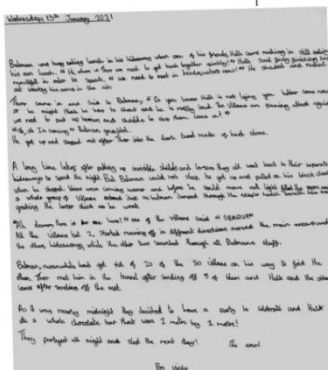 Wednesday 13th January 2021
Batman was busy eating lunch in his hideaway when one of his friends, Hulk came rushing in still eating
his own lunch. " We have to get back together quickly!" Hulk said finishing his
mouthful in order to speak. " We need to meet in headquarters now!" He shouted and
his arms in the air.
Thor came in and said to Batman, " Do you know Hulk is not lying you better come now
or he might think he has to shout and he is really loud. The villans are planning attack again
we need to put up and shields to stop them. Come on!"
" Ok, ok I'm coming " Batman grumbled.
He got up and stepped out after Thor into the dark made of stone.
A long time later after putting up invisible shields and they all went back to their separate
hideaways to spend the night. But Batman could not sleep. he got up and pulled on his black
when he stopped. Voices were coming nearer and before he could move red light filled the room and
a whole group of villans entered. Batman through the trapdoor beneath him
grabbing the as he went.
one of the villans said " SEARCH"
All the villans but 2, started running off in different directions around the main
the other hideaways while the other two searched through all Batmans stuff.
Batman, meanwhile had got rid of 20 of the 30 villans on his way to find the
Thor met him in the tunnel after sending off 5 of them and Hulk and the other
came after sending off the rest.
As it was nearly midnight they decided to have a party to celebrate and Hulk
ate a whole chocolate bar that was 1 metre by 2 metre!
They partyed all night and slept the next day! The end
By